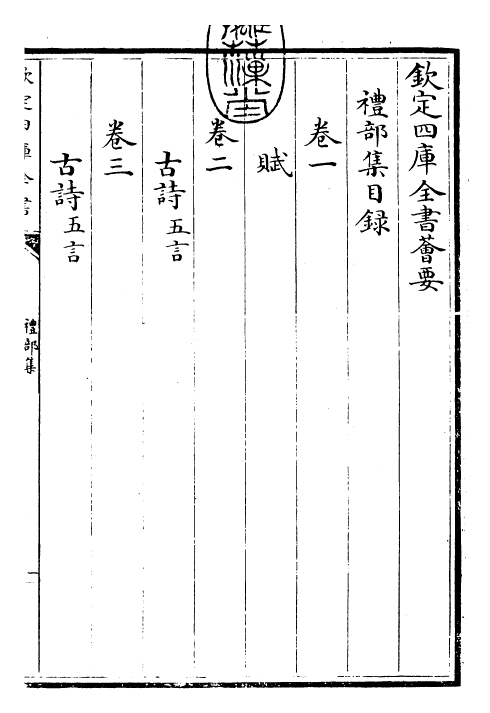 欽定四庫全書薈要
禮部集目録
卷一
賦
卷二
古詩五言
卷三
古詩五言
欽定四庫全書
禮部集